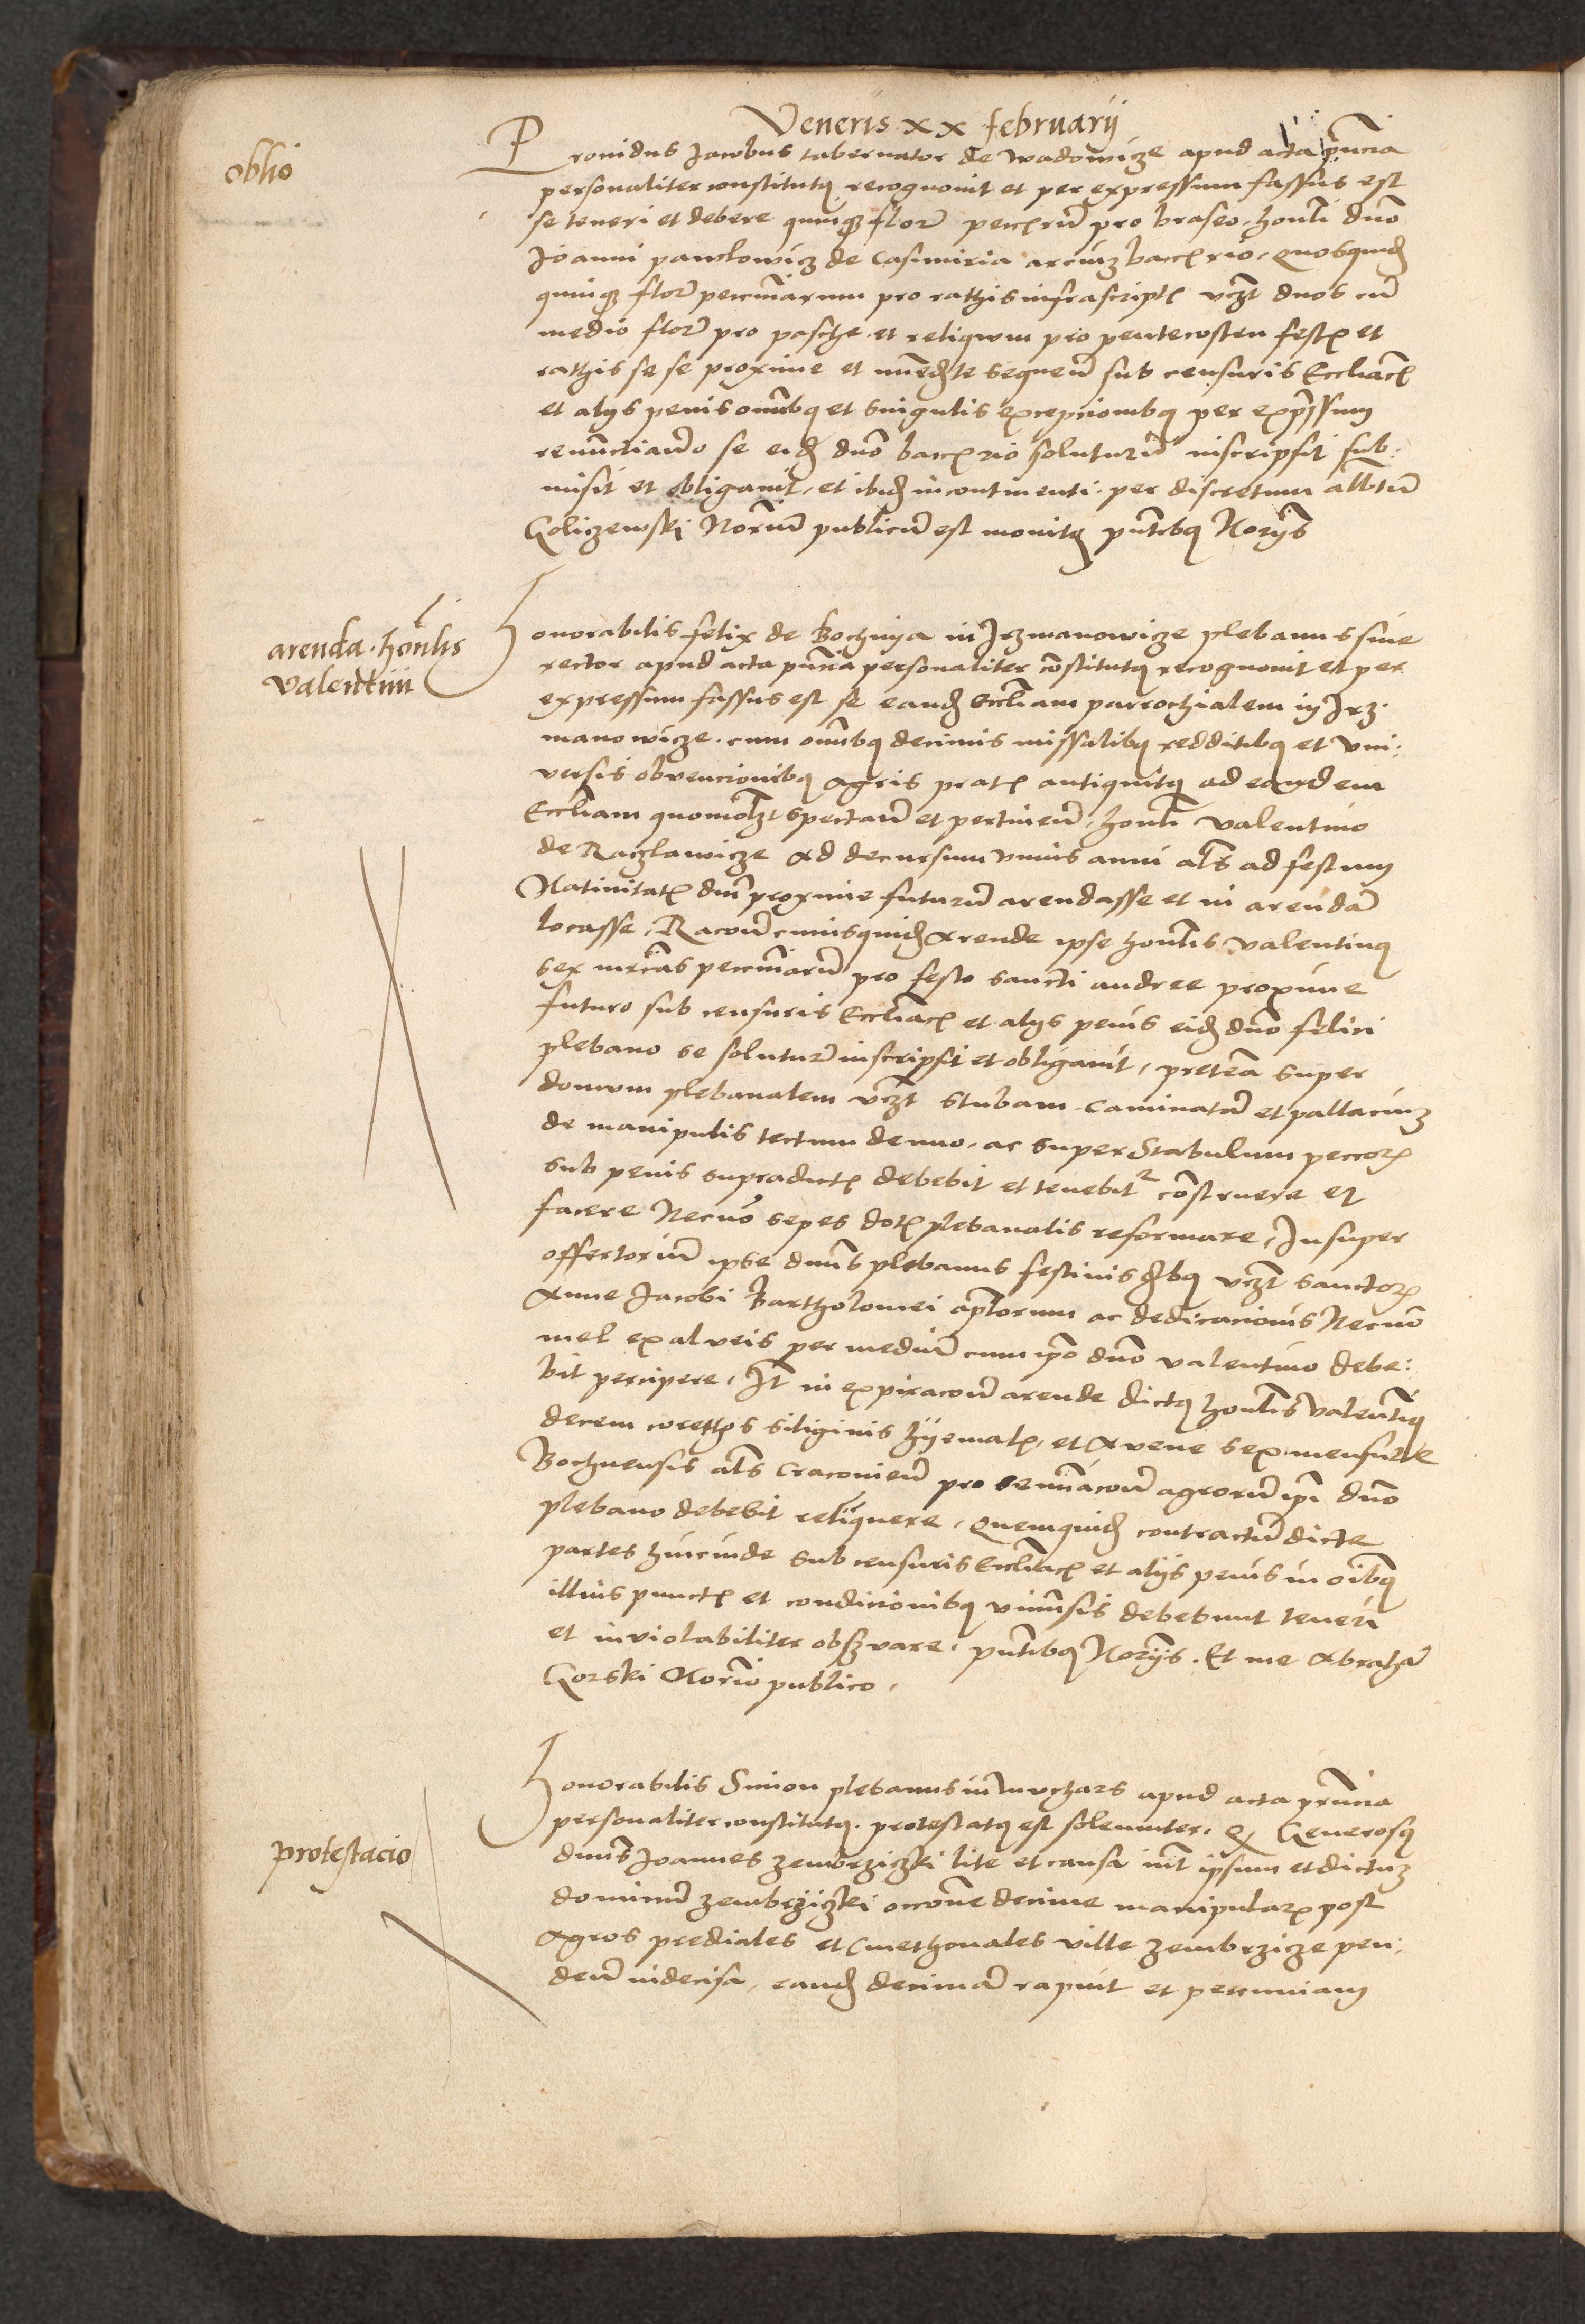 Veneris xx februarij
oblio
Prouidus Jacobus tabernator de wadowicze apud acta pñcia
personaliter constitutq recognouit et per expressum fassus est
se teneri et debere quinqꝫ flor peccrũ pro braseo honli dno
Joanni pawlowicz de Casimiria arciuz baccrio, quosquid
quinqꝫ flor pecciniarum pro rathis infrascript vꝫt duos cũ
medio flor pro pasche et reliquum pro pentecosten fest et
rathis se se proxime et immedte sequeñ sub censuris Ecclias
et alijs penis omĩbq et singulis excepcionibq per expressum
renunctiando se eid dno baccrio soluturũ inscripsit sub:
misit et obligauit, et ibid incontinenti per discretum albtũ
Goliczewski Noriũ publicũ est monitq pñtibq Norijs
arenda honlis
valentini
Honorabilis felix de Bochnya in Jrzmanowicze plebanus siue
rector apud acta pñcia personaliter constitutq recognouit et per
expressum fassus est se eand eccliam parrochialem in Jrz
manowicze cum omĩbq decimis missalibq redditibq et vni:
versis obvencionibq agris prat antiquitq ad eandem
Eccliam quomolꝫt spectañ et pertineñ, honli valentino
de Raczlawicze ad decursum vnius anni als ad festum
Natiuitat dni proxime futurũ arendasse et in arendã
locasse, Racoñe cuiusquid arende ipse honlis valentinq
sex mrcas pecciniarũ pro festo sancti andree proxime
futuro sub censuris Ecclias et alijs penis eid dno felici
plebano se soluturũ inscripsit et obligauit, pretea super
domum plebanalem vꝫt stubam caminatã et pallaciuz
de manipulis tectum denuo, ac super stabulum peccorꝫ
sub penis supradict debebit et tenebitr construere et
facere Necno sepes dot plebanalis reformare, Insuper
offertoriũ ipse dnus plebanus festiuis dbq vꝫt sanctorꝫ
Anne Jacobi Bartholomei aplorum ac dedicacionis Necno
mel ex alveis per mediũ cum ipo dno valentino debe:
bit percipere, It in expiracoñe arende dictq honlis valentinq
decem corethos siliginis hyemal, et Avene sex mensure
Bochnensis als Cracovieñ pro seminacoñe agrorũ ipi dno
plebano debebit relinquere, quemquid contractũ dicte
partes hincinde sub censuris Ecclias et alijs penis in oibq
illius punct et condicionibq vniusis debebunt teneri
et inviolabiliter obszvare, pñtibq Norijs. Et me Abrahã
Gorski Norio publico,
protestacio
Honorabilis Simon plebanus in Mvchars apud acta pñcia
personaliter constitutq protestatq est solenniter, q Generosq
dnus Joannes zembrziczki lite et causa int ipsum et dictuz
dominũ zembrziczki occoñe decime manipular post
Agros prediales et Cmethonales ville zembrzicze pen:
deñ indecisa, eand decimã rapuit et pecuniam